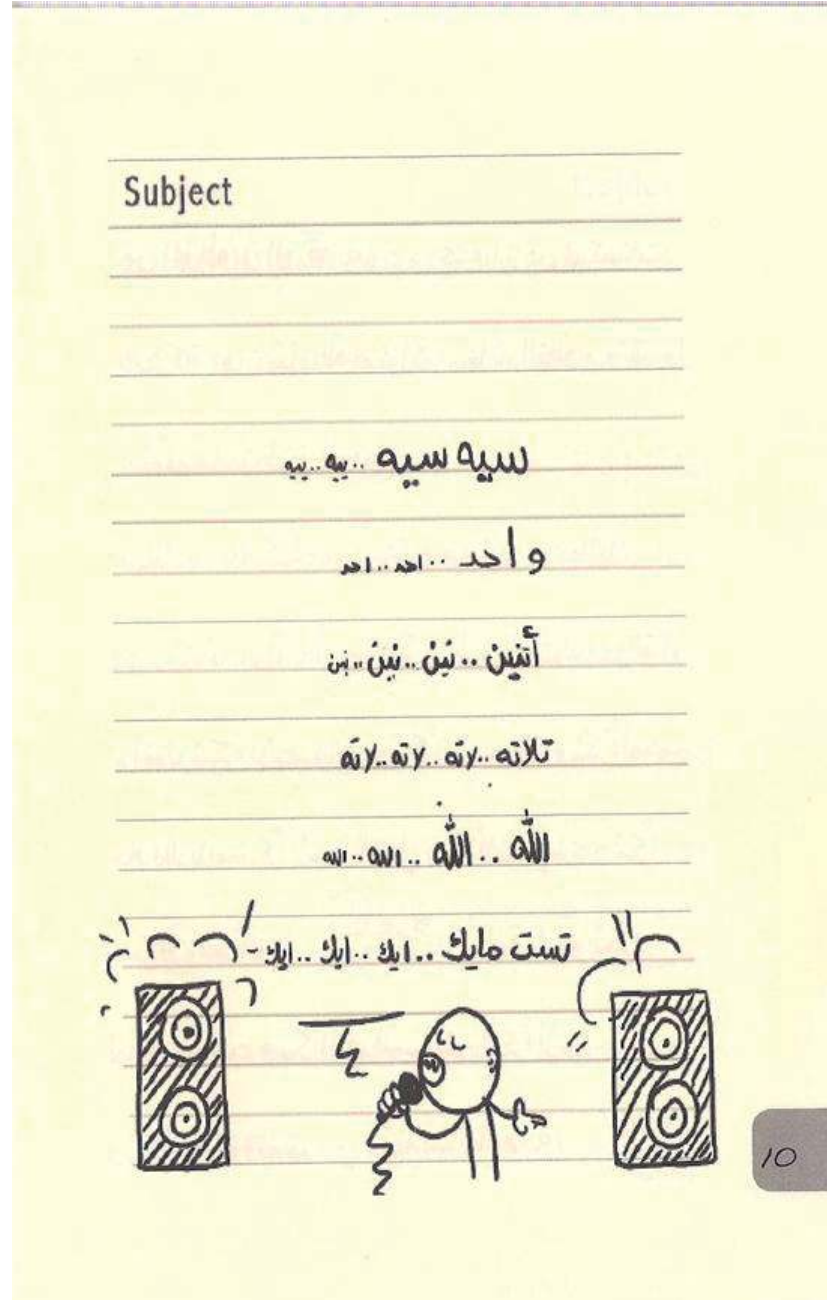 Subject
سيه سيه .. ييه .. ييه
واحد .. احد .. احد
أتنين .. نين .. نين .. نين
تلاته .. لاته .. لاته .. لاته
الله .. الله .. الله .. الله
تست مايك .. ايك .. ايك .. ايك
10